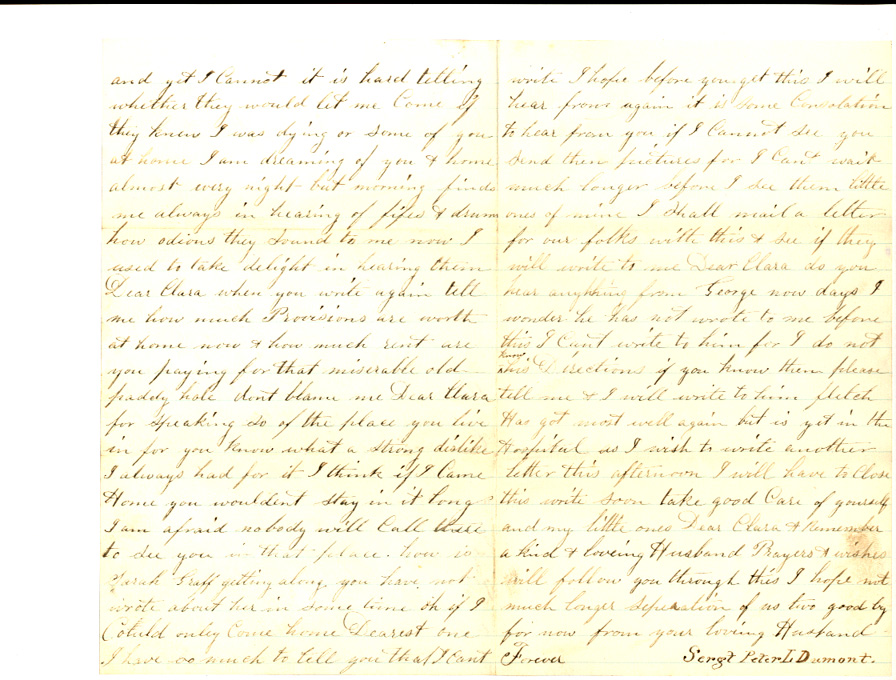 and yet I Cannot it is hard telling
whether they would let me Come if
they knew I was dying or some of you
at home I am dreaming of you & home
almost every night but morning finds
me always in hearing of fifes & drums
how odious they sound to me now I
used to take delight in hearing them
Dear Clara when you write again tell
me how much Provisions are worth
at home now & how much rent are
you paying for that miserable old
paddy hole dont blame me Dear Clara
for speaking so of the place you live
in for you know what a strong dislike
I always had for it I think if I Came
Home you wouldent stay in it long
I am afraid nobody will Call there
to see you in that place. how is
Sarah Graff getting along you have not
wrote about her in some time oh if I
Cohuld onley Come home Dearest one
I have so much to tell you that I Cant
write I hope before you get this I will
hear from again it is some Consolation
to hear from you if I Cannot see you
Send them pictures for I Cant wait
much longer before I see them little
ones of mine I Shall mail a letter
for our folks with this & see if they
will write to me Dear Clara do you
hear anything from George now days I
wonder he has not wrote to me before
this I Cant write to him for I do not
know
his Directions if you know them please
tell me & I will write to him fletch
Has got most well again but is yet in the
Hospital as I wish to write another
letter this afternoon I will have to Close
this write soon take good Care of yourself
and my little ones Dear Clara & Remember
a kind & loveing Husband Prayers & wishes
will follow you through this I hope not
much longer seperation of us two good by
for now from your loving Husband
Forever Sergt Peter L Dumont.